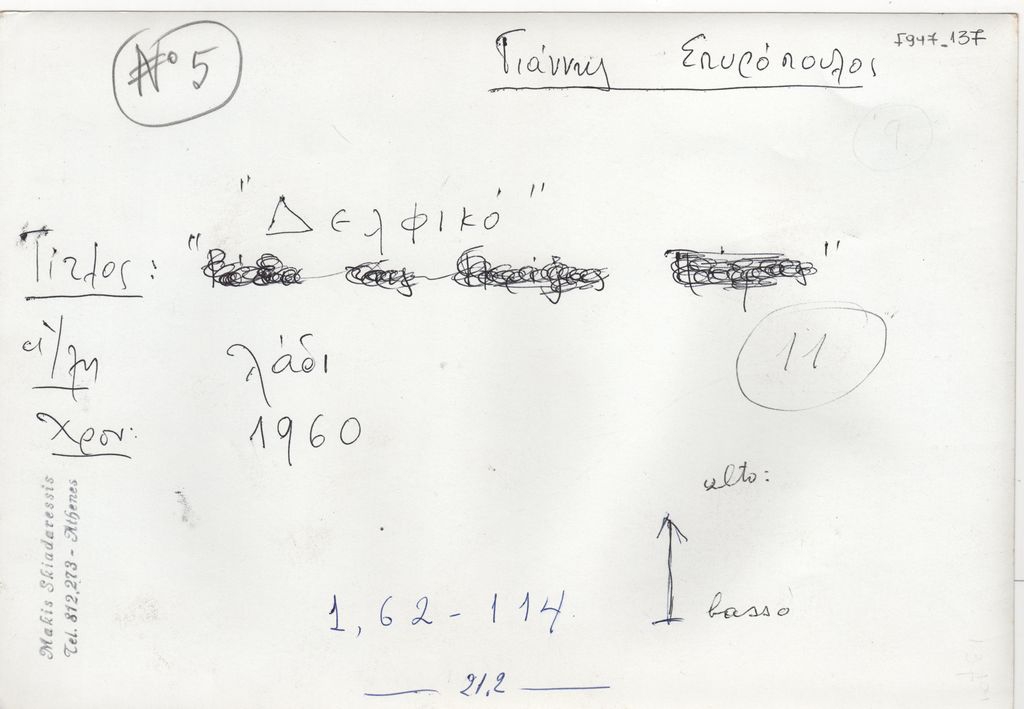 Nº 5
Γιάννης Σπυρόπουλος
5947_137
9
"Δελφικό"
Τίτλος: " "
11
λάδι
Χρον: 1960
alto:
basso
1,62 - 114
21,2
Makis Skiadaressis
Tel. 812,273 - Athenes